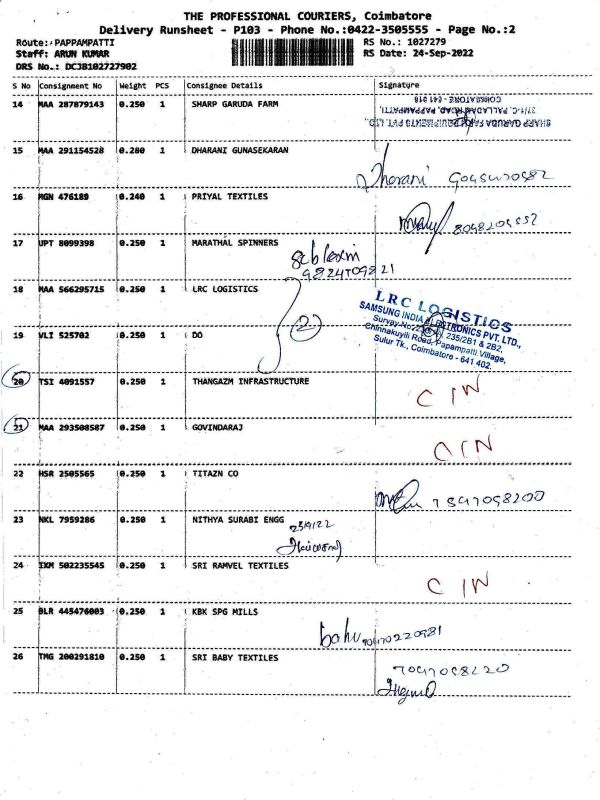 THE PROFESSIONAL COURIERS, Coimbatore
Delivery Runsheet - P103 - Phone No.:0422-3505555 - Page No.:2
Route: PAPPAMPATTI RS No.: 1027279
Staff: ARUN KUMAR RS Date: 24-Sep-2022
DRS No.: DCJB102727902
S No Consignment No Weight PCS Consignee Details Signature
14 MAA 287879143 0.250 1 SHARP GARUDA FARM
SHARP GARUDA FARM EQUIPMENTS PVT. LTD.,
37/1-C, PALLADAM ROAD, PAPPAMPATTI,
COIMBATORE - 641 016
15 MAA 291154528 0.280 1 DHARANI GUNASEKARAN
Dharani
16 MGN 476189 0.240 1 PRIYAL TEXTILES
17 UPT 8099398 0.250 1 MARATHAL SPINNERS
18 MAA 566295715 0.250 1 LRC LOGISTICS
2
LRC LOGISTICS
SAMSUNG INDIA ELECTRONICS PVT. LTD.,
Survey No. 235/2B1 & 2B2,
Chinnakuyili Road, Papampatti Village,
Sulur Tk., Coimbatore - 641 402.
19 VLI 525702 0.250 1 DO
20 TSI 4091557 0.250 1 THANGAZM INFRASTRUCTURE
CIN
21 MAA 293508587 0.250 1 GOVINDARAJ
CIN
22 MSR 2505565 0.250 1 TITAZN CO
23 NKL 7959286 0.250 1 NITHYA SURABI ENGG
24 IXM 502235545 0.250 1 SRI RAMVEL TEXTILES
CIN
25 BLR 445476003 0.250 1 KBK SPG MILLS
26 TMG 200291810 0.250 1 SRI BABY TEXTILES